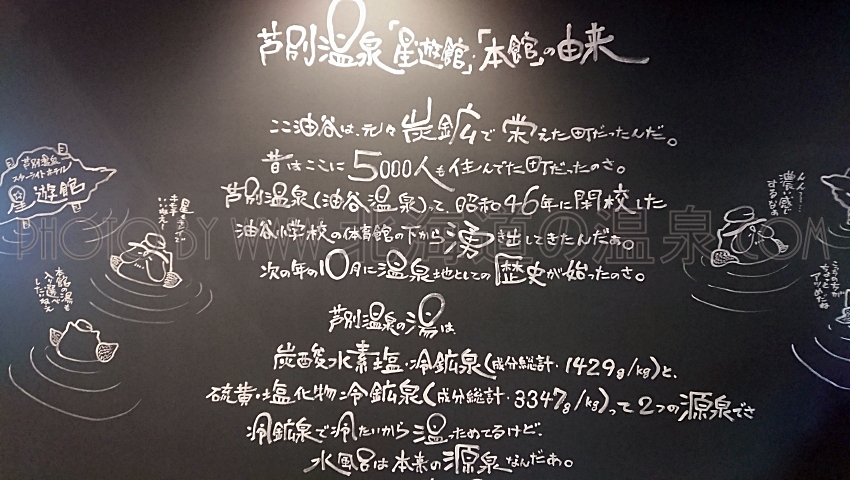 芦別温泉「星遊館」・「本館」の由来
ここ油谷は、元々炭鉱で栄えた町だったんだ。
昔はここに5000人も住んでた町だったのさ。
芦別温泉(油谷温泉)って、昭和46年に閉校した
油谷小学校の体育館の下から湧き出してきたんだぁ。
次の年の10月に温泉地としての歴史が始ったのさ。
芦別温泉の湯は
炭酸水素塩・冷鉱泉(成分総計・1429g/kg)と、
硫黄・塩化物冷鉱泉(成分総計・3347g/kg)って2つの源泉でさ
冷鉱泉で冷たいから温っためてるけど、
水風呂は本来の源泉なんだぁ。
芦別温泉
スターライトホテル
星遊館
本館の湯も
入り選べ
濃い感じ
するなぁ
PHOTO BY WWW.北海道の温泉.COM